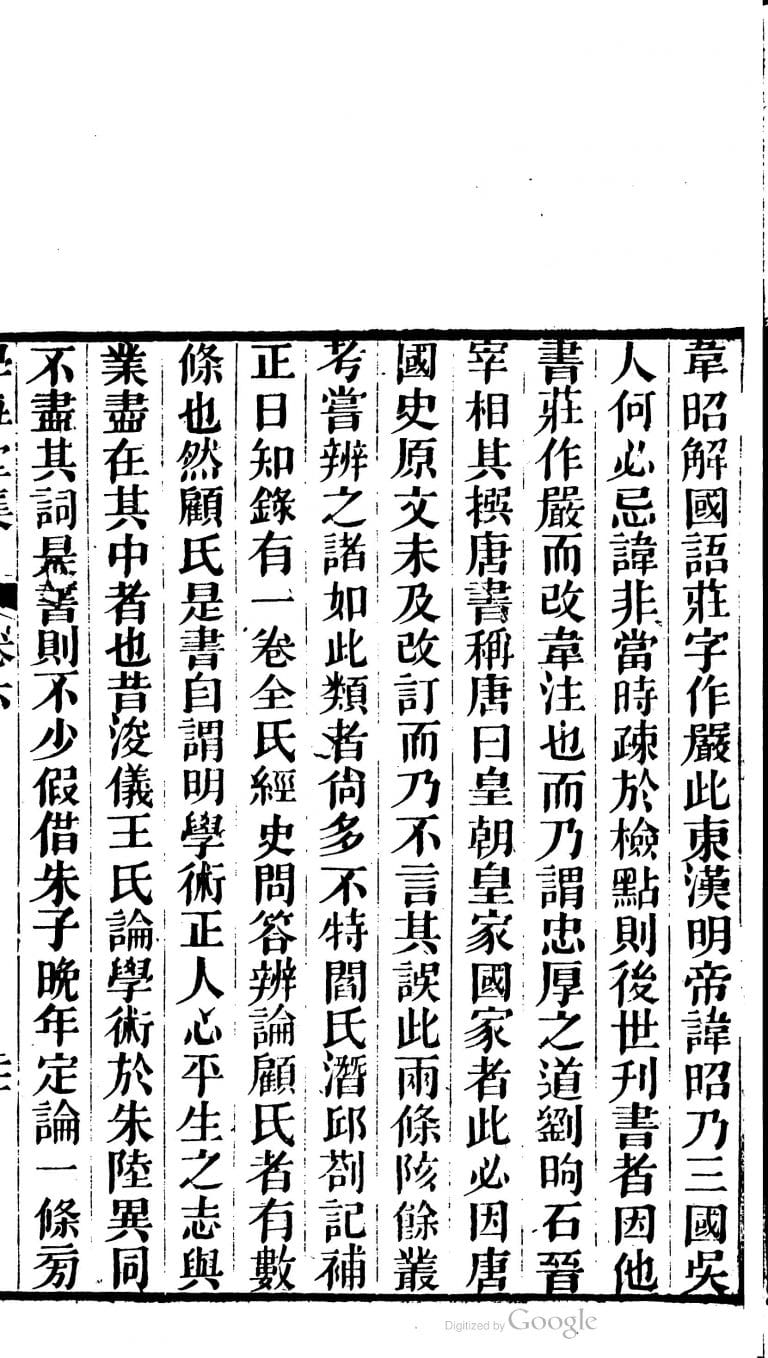 韋昭解國語莊字作嚴此東漢明帝諱昭乃三國吳
人何必忌諱非當時疎於檢點則後世刋書者因他
書莊作嚴而改韋注也而乃謂忠厚之道劉昫石晉
宰相其撰唐書稱唐曰皇朝皇家國家者此必因唐
國史原文未及改訂而乃不言其誤此兩條陔餘叢
考嘗辨之諸如此類者尙多不特閻氏潛邱劄記補
正日知錄有一卷全氏經史問答辨論顧氏者有數
條也然顧氏是書自謂明學術正人心平生之志與
業盡在其中者也昔浚儀王氏論學術於朱陸異同
不盡其詞是書則不少假借朱子晚年定論一條𣃟
Digitized by Google